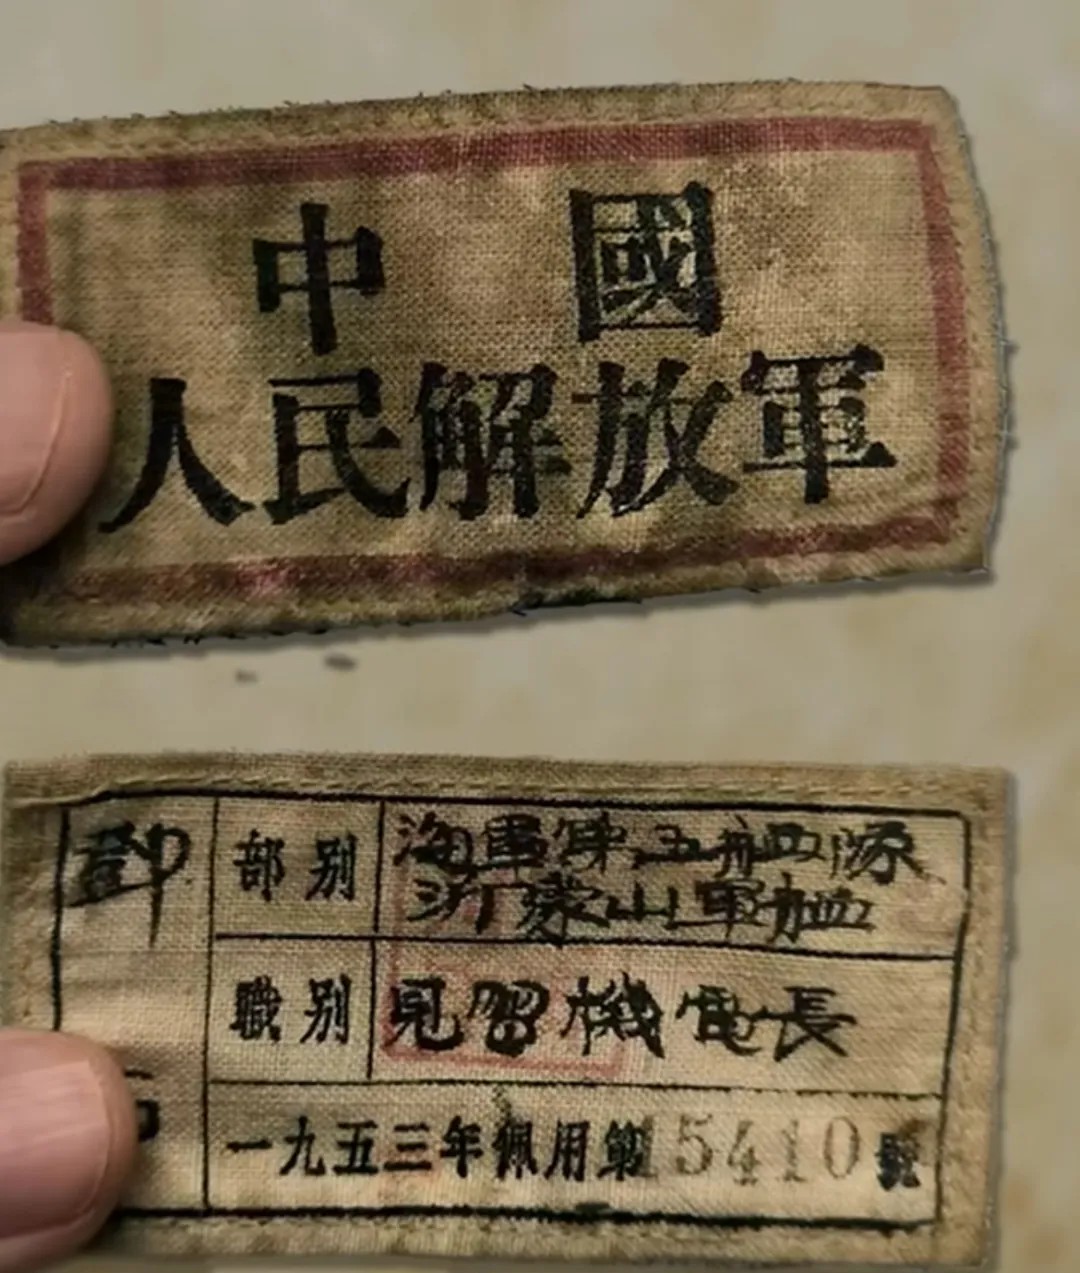 中國
人民解放軍
鄧
部別
海軍第五艦隊
沂蒙山軍艦
職別
見習機電長
一九五三年佩用第15410號